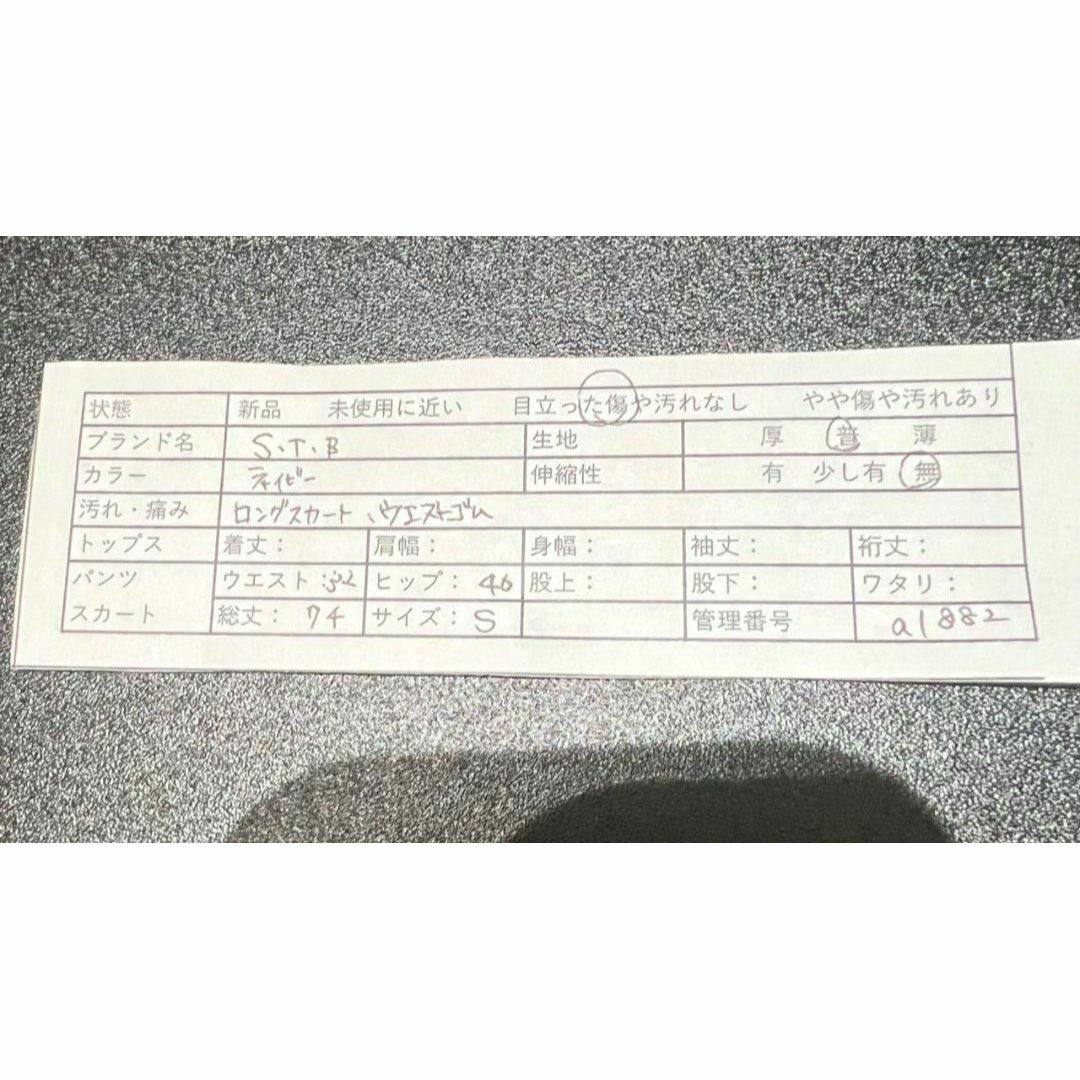 状態 新品 未使用に近い 目立った傷や汚れなし やや傷や汚れあり
ブランド名 S.T.B 生地 厚 普 薄
カラー ネイビー 伸縮性 有 少し有 無
汚れ・痛み ロングスカート、ウエストゴム
トップス 着丈： 肩幅： 身幅： 袖丈： 裄丈：
パンツ ウエスト：32 ヒップ：46 股上： 股下： ワタリ：
スカート 総丈：74 サイズ：S 管理番号 a1882